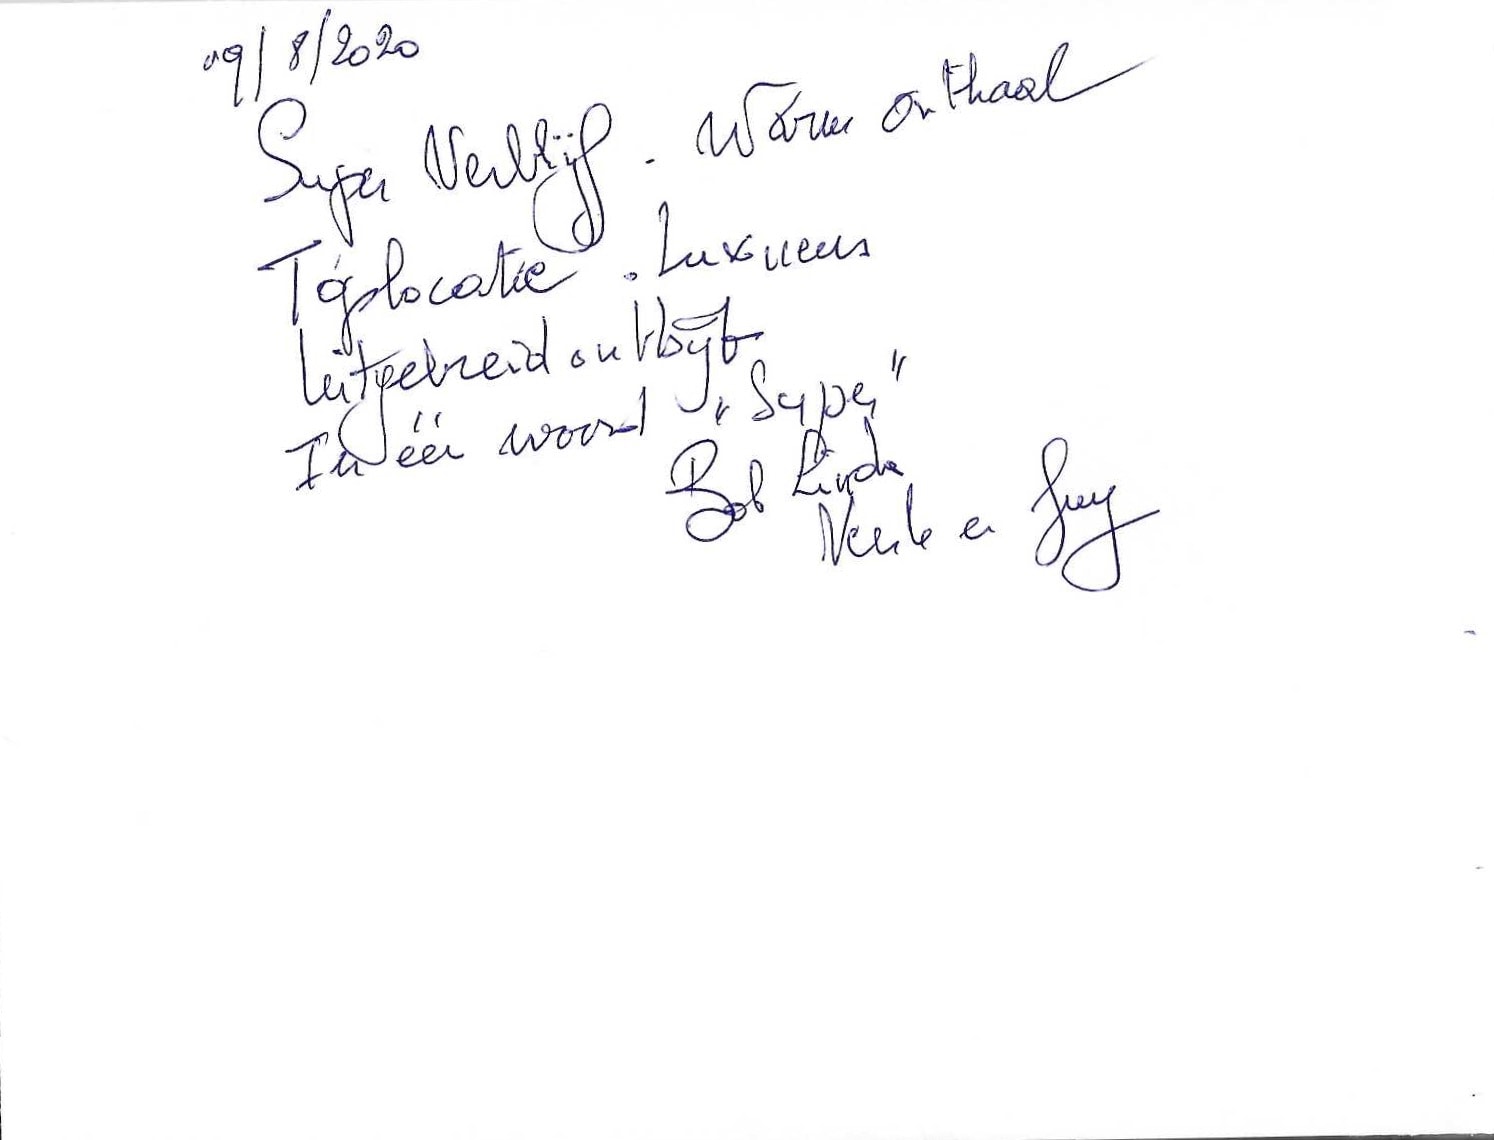 09/8/2020
Super Verblijf. Warm onthaal
Toplocatie. Luxueus
Uitgebreid ontbijt
In één woord "Super"
Bob Linda
en Guy